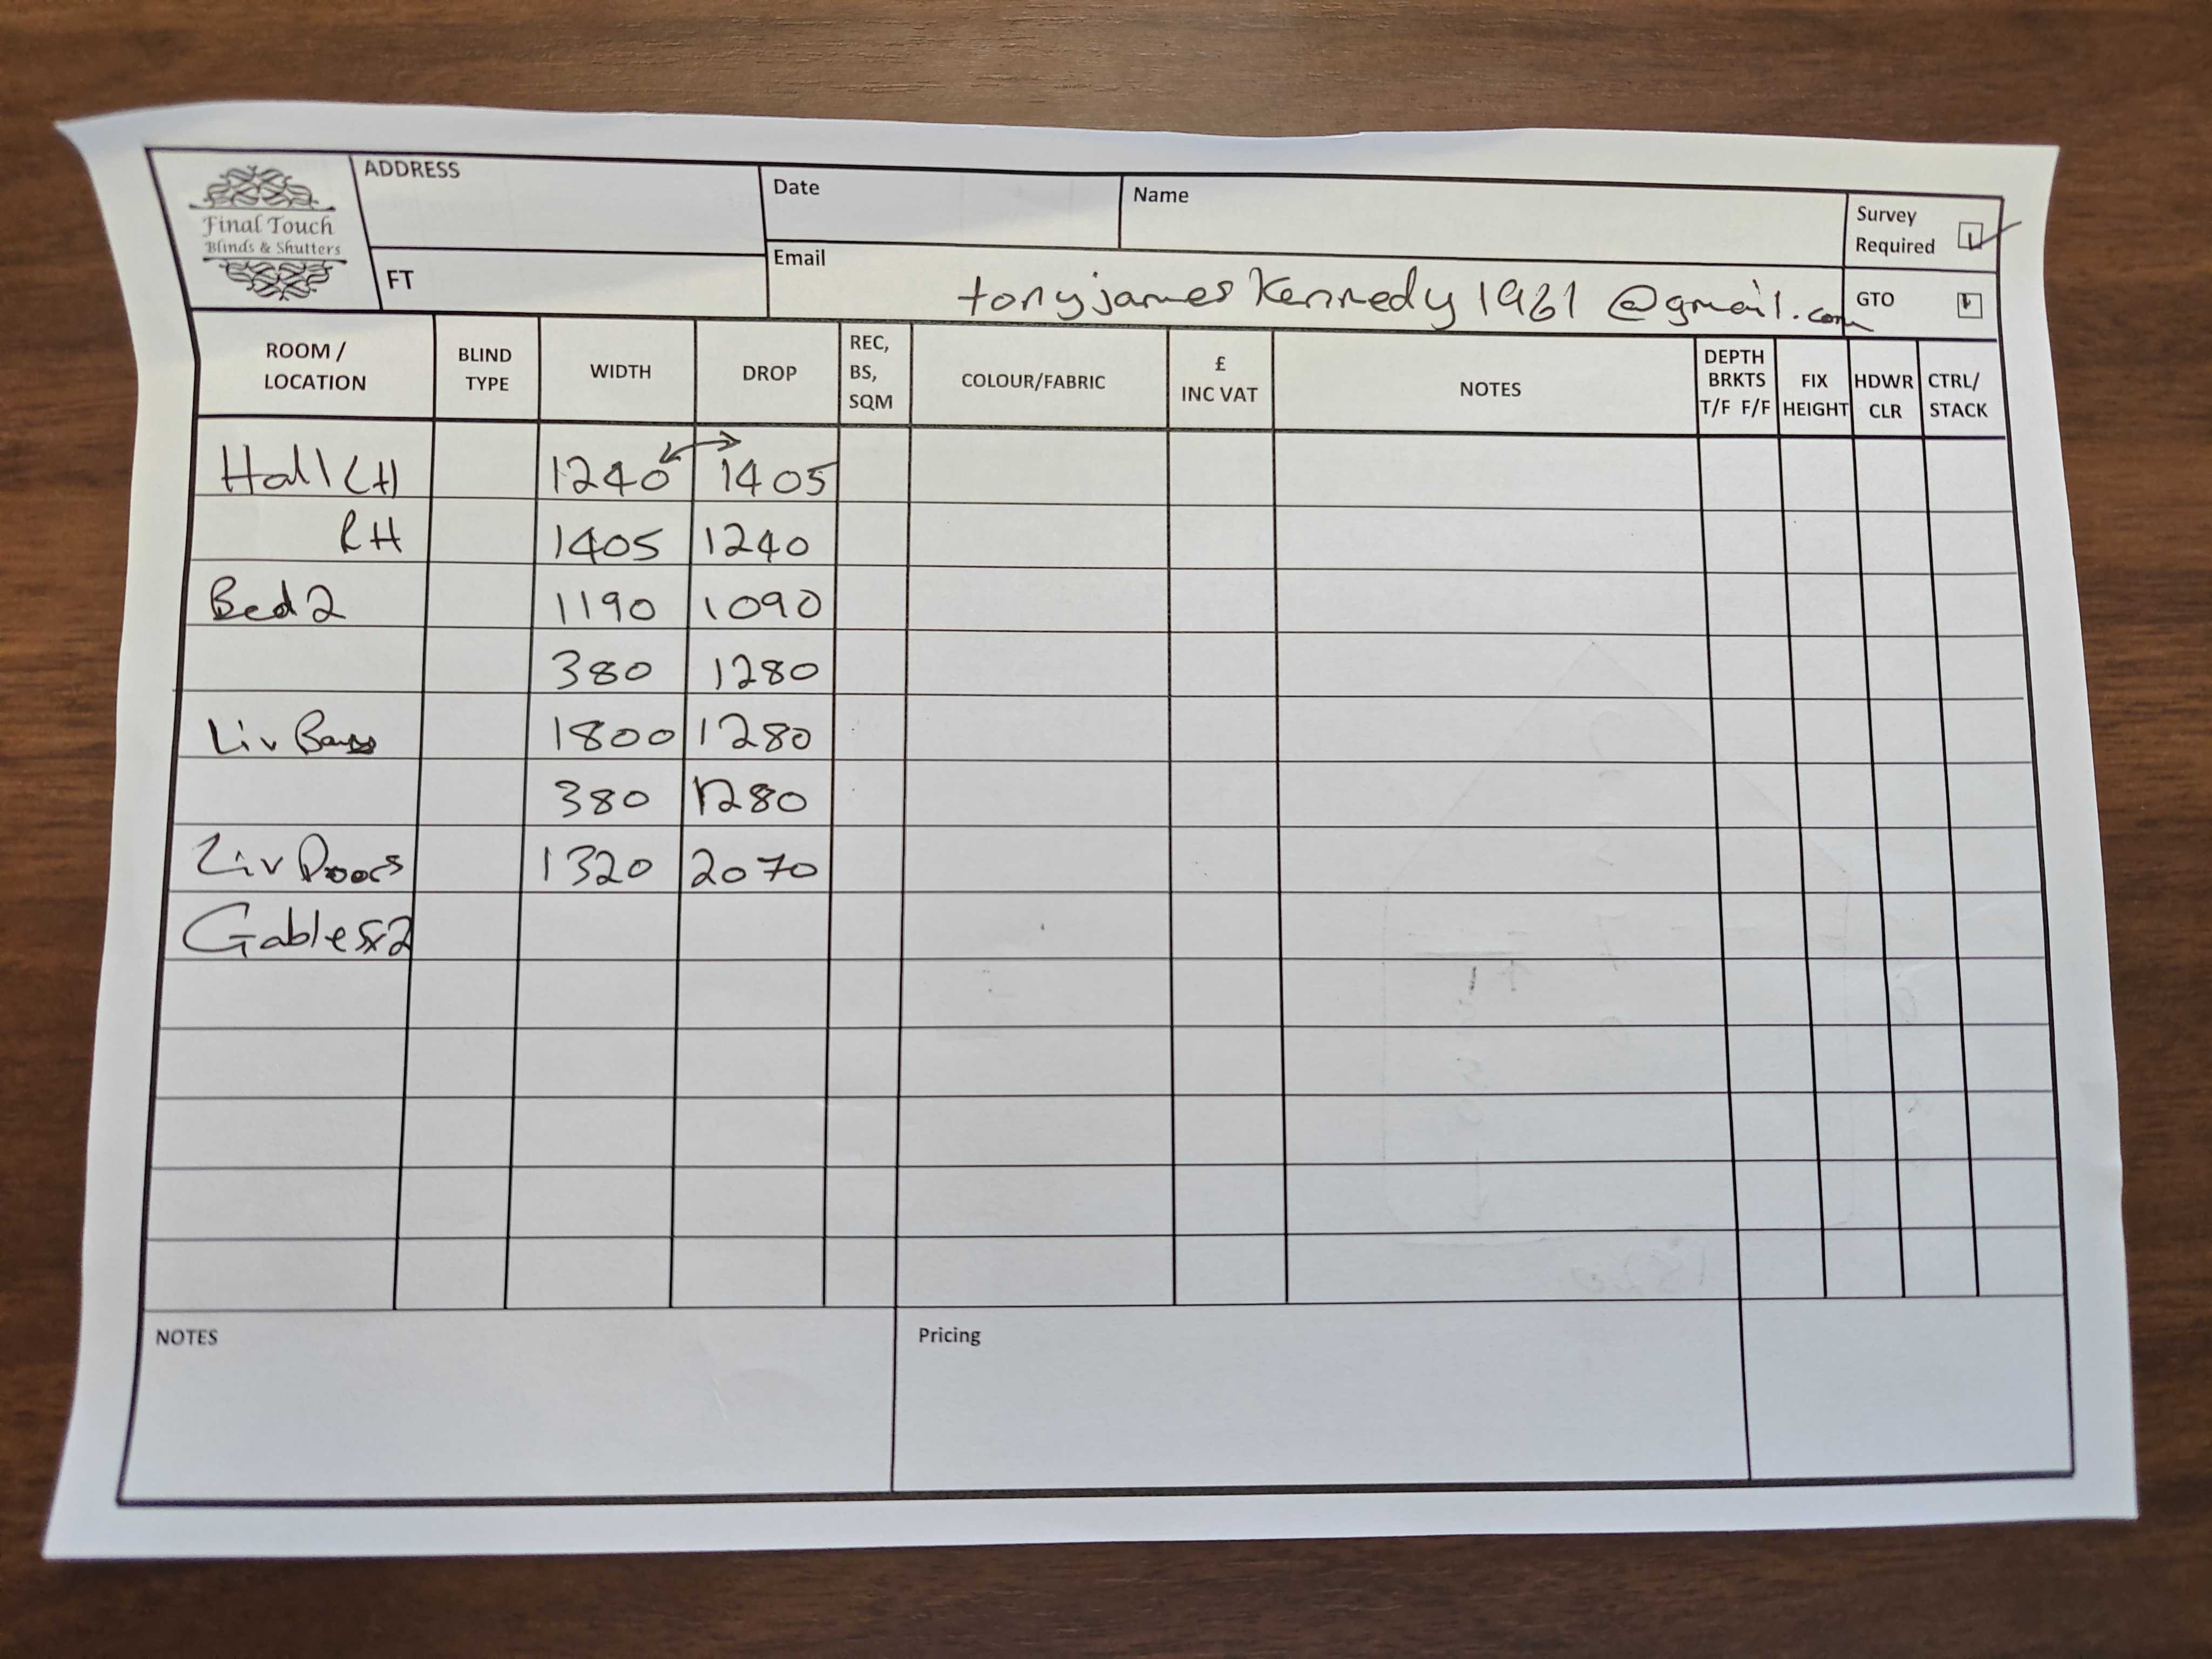 Final Touch
Blinds & Shutters
ADDRESS
FT
Date
Name
Survey Required
Email
tonyjameskennedy1961@gmail.com
GTO
ROOM / LOCATION
BLIND TYPE
WIDTH
DROP
REC, BS, SQM
COLOUR/FABRIC
£ INC VAT
NOTES
DEPTH BRKTS T/F F/F
FIX HEIGHT
HDWR CLR
CTRL/ STACK
Hall LH 1240 1405
RH 1405 1240
Bed 2 1190 1090
380 1280
Liv 1800 1280
380 1280
Liv Doors 1320 2070
Gables x2
NOTES
Pricing